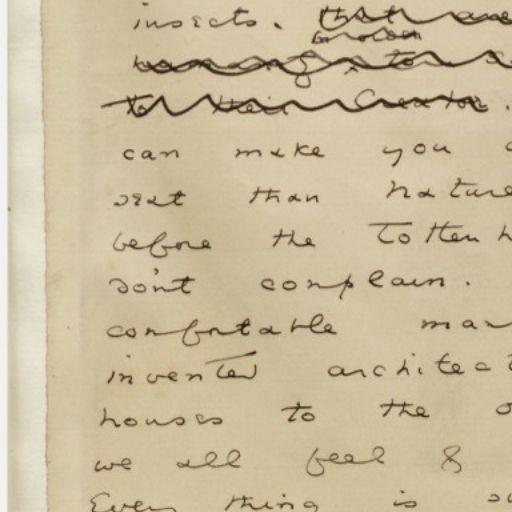 insects. that are
broken
to
to their Creator.
can make you
seat than Nature
before the Tottenh
don't complain.
comfortable man
invented architect
houses to the o
we all feel &
Every thing is su